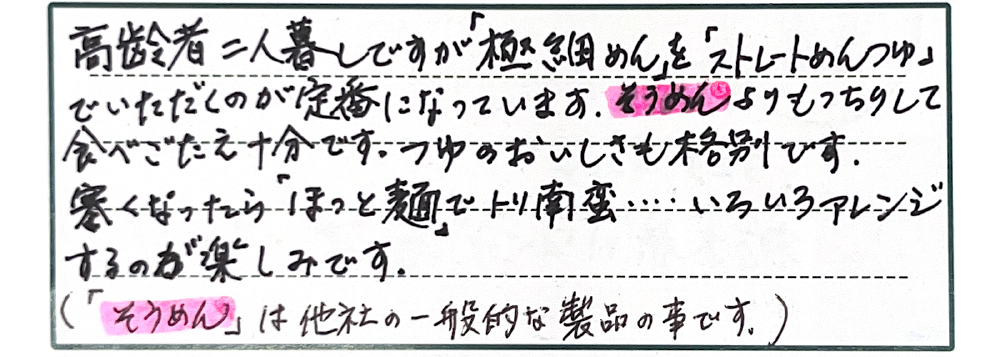 高齢者二人暮しですが「極細めん」を「ストレートめんつゆ」
でいただくのが定番になっています。そうめんよりもっちりして
食べごたえ十分です。つゆのおいしさも格別です。
寒くなったら「ほっと麺」でトリ南蛮‥‥いろいろアレンジ
するのが楽しみです。
(「そうめん」は他社の一般的な製品の事です。)